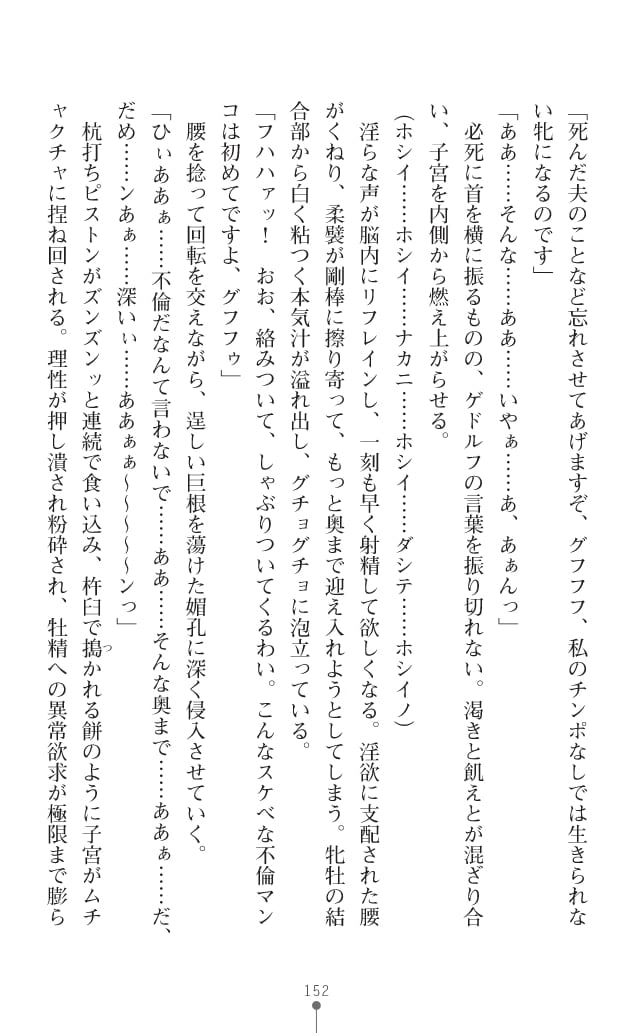 「死んだ夫のことなど忘れさせてあげますぞ、グフフフ、私のチンポなしでは生きられな
い牝になるのです」
「ああ……そんな……ああ……いやぁ……あ、あぁんっ」
　必死に首を横に振るものの、ゲドルフの言葉を振り切れない。渇きと飢えとが混ざり合
い、子宮を内側から燃え上がらせる。
（ホシイ……ホシイ……ナカニ……ホシイ……ダシテ……ホシイノ）
　淫らな声が脳内にリフレインし、一刻も早く射精して欲しくなる。淫欲に支配された腰
がくねり、柔襞が剛棒に擦り寄って、もっと奥まで迎え入れようとしてしまう。牝牡の結
合部から白く粘つく本気汁が溢れ出し、グチョグチョに泡立っている。
「フハハァッ！　おお、絡みついて、しゃぶりついてくるわい。こんなスケベな不倫マン
コは初めてですよ、グフフゥ」
　腰を捻って回転を交えながら、逞しい巨根を蕩けた媚孔に深く侵入させていく。
「ひぃああぁ……不倫だなんて言わないで……ああ……そんな奥まで……ああぁ……だ、
だめ……ンあぁ……深いぃ……ああぁぁ～～～～～ンっ」
　杭打ちピストンがズンズンッと連続で食い込み、杵臼で搗かれる餅のように子宮がムチ
つ
ャクチャに捏ね回される。理性が押し潰され粉砕され、牡精への異常欲求が極限まで膨ら
152